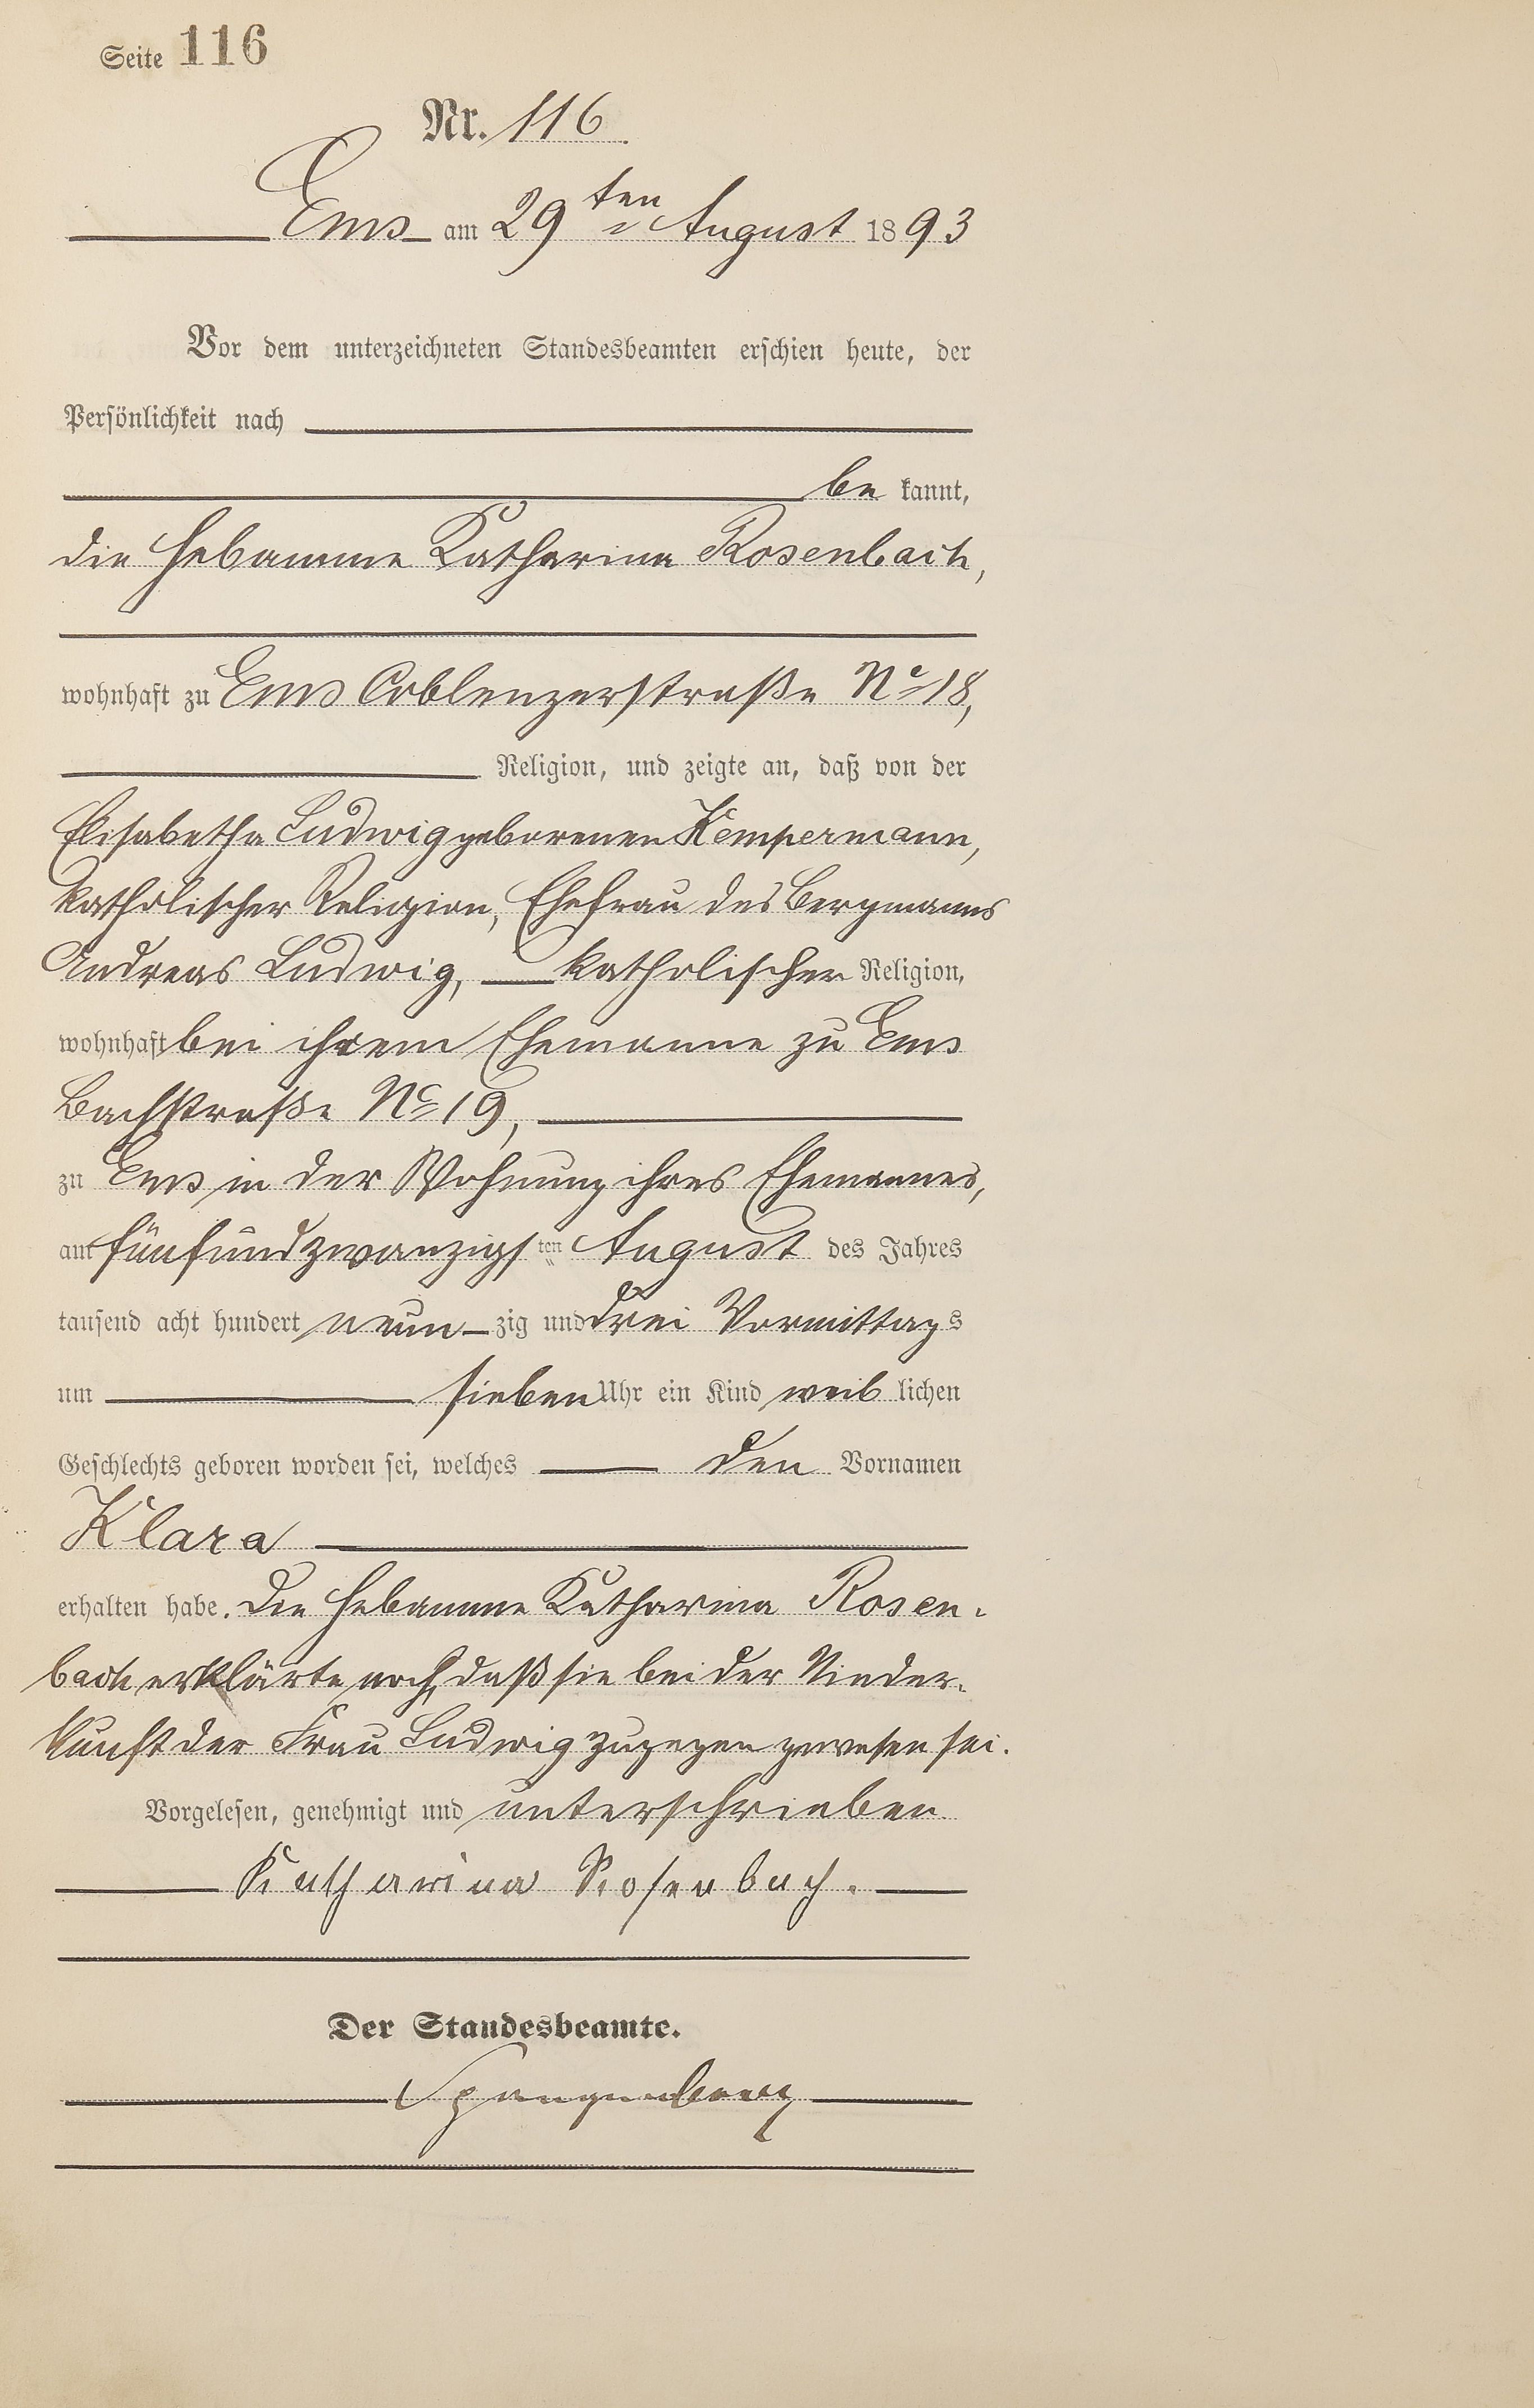 Seite 116
Nr. 116
Ems am 29ten August 1893
Vor dem unterzeichneten Standesbeamten erschien heute, der
Persönlichkeit nach
be kannt,
die Hebamme Katharina Rosenbach,
wohnhaft zu Ems Coblenzerstraße No 18,
Religion, und zeigte an, daß von der
Elisabetha Ludwig geborenen Kempermann,
katholischer Religion, Ehefrau des Bergmanns
Andreas Ludwig, katholischer Religion,
wohnhaft bei ihrem Ehemanne zu Ems
Bachstraße No 19,
zu Ems in der Wohnung ihres Ehemannes,
am fünfundzwanzigsten August des Jahres
tausend acht hundert neun zig und drei Vormittags
um sieben Uhr ein Kind weib lichen
Geschlechts geboren worden sei, welches den Vornamen
Klara
erhalten habe. Die Hebamme Katharina Rosen-
bach erklärte noch, daß sie bei der Nieder-
kunft der Frau Ludwig zugegen gewesen sei.
Vorgelesen, genehmigt und unterschrieben
Katharina Rosenbach.
Der Standesbeamte.
Spangenberg